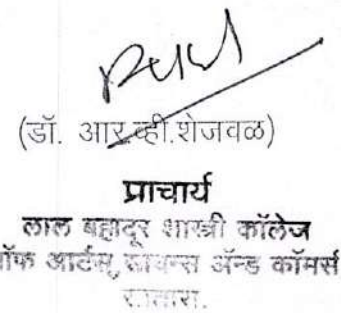 (डॉ. आर.व्ही.शेजवळ)
प्राचार्य
लाल बहादूर शास्त्री कॉलेज
ऑफ आर्टस्, सायन्स ॲन्ड कॉमर्स
सातारा.